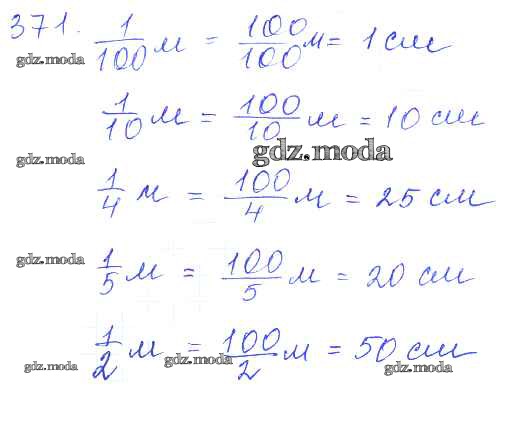 371. 1/100 м = 100/100 м = 1 см
gdz.moda
1/10 м = 100/10 м = 10 см
gdz.moda
gdz.moda
1/4 м = 100/4 м = 25 см
gdz.moda
1/5 м = 100/5 м = 20 см
1/2 м = 100/2 м = 50 см
gdz.moda gdz.moda gdz.moda